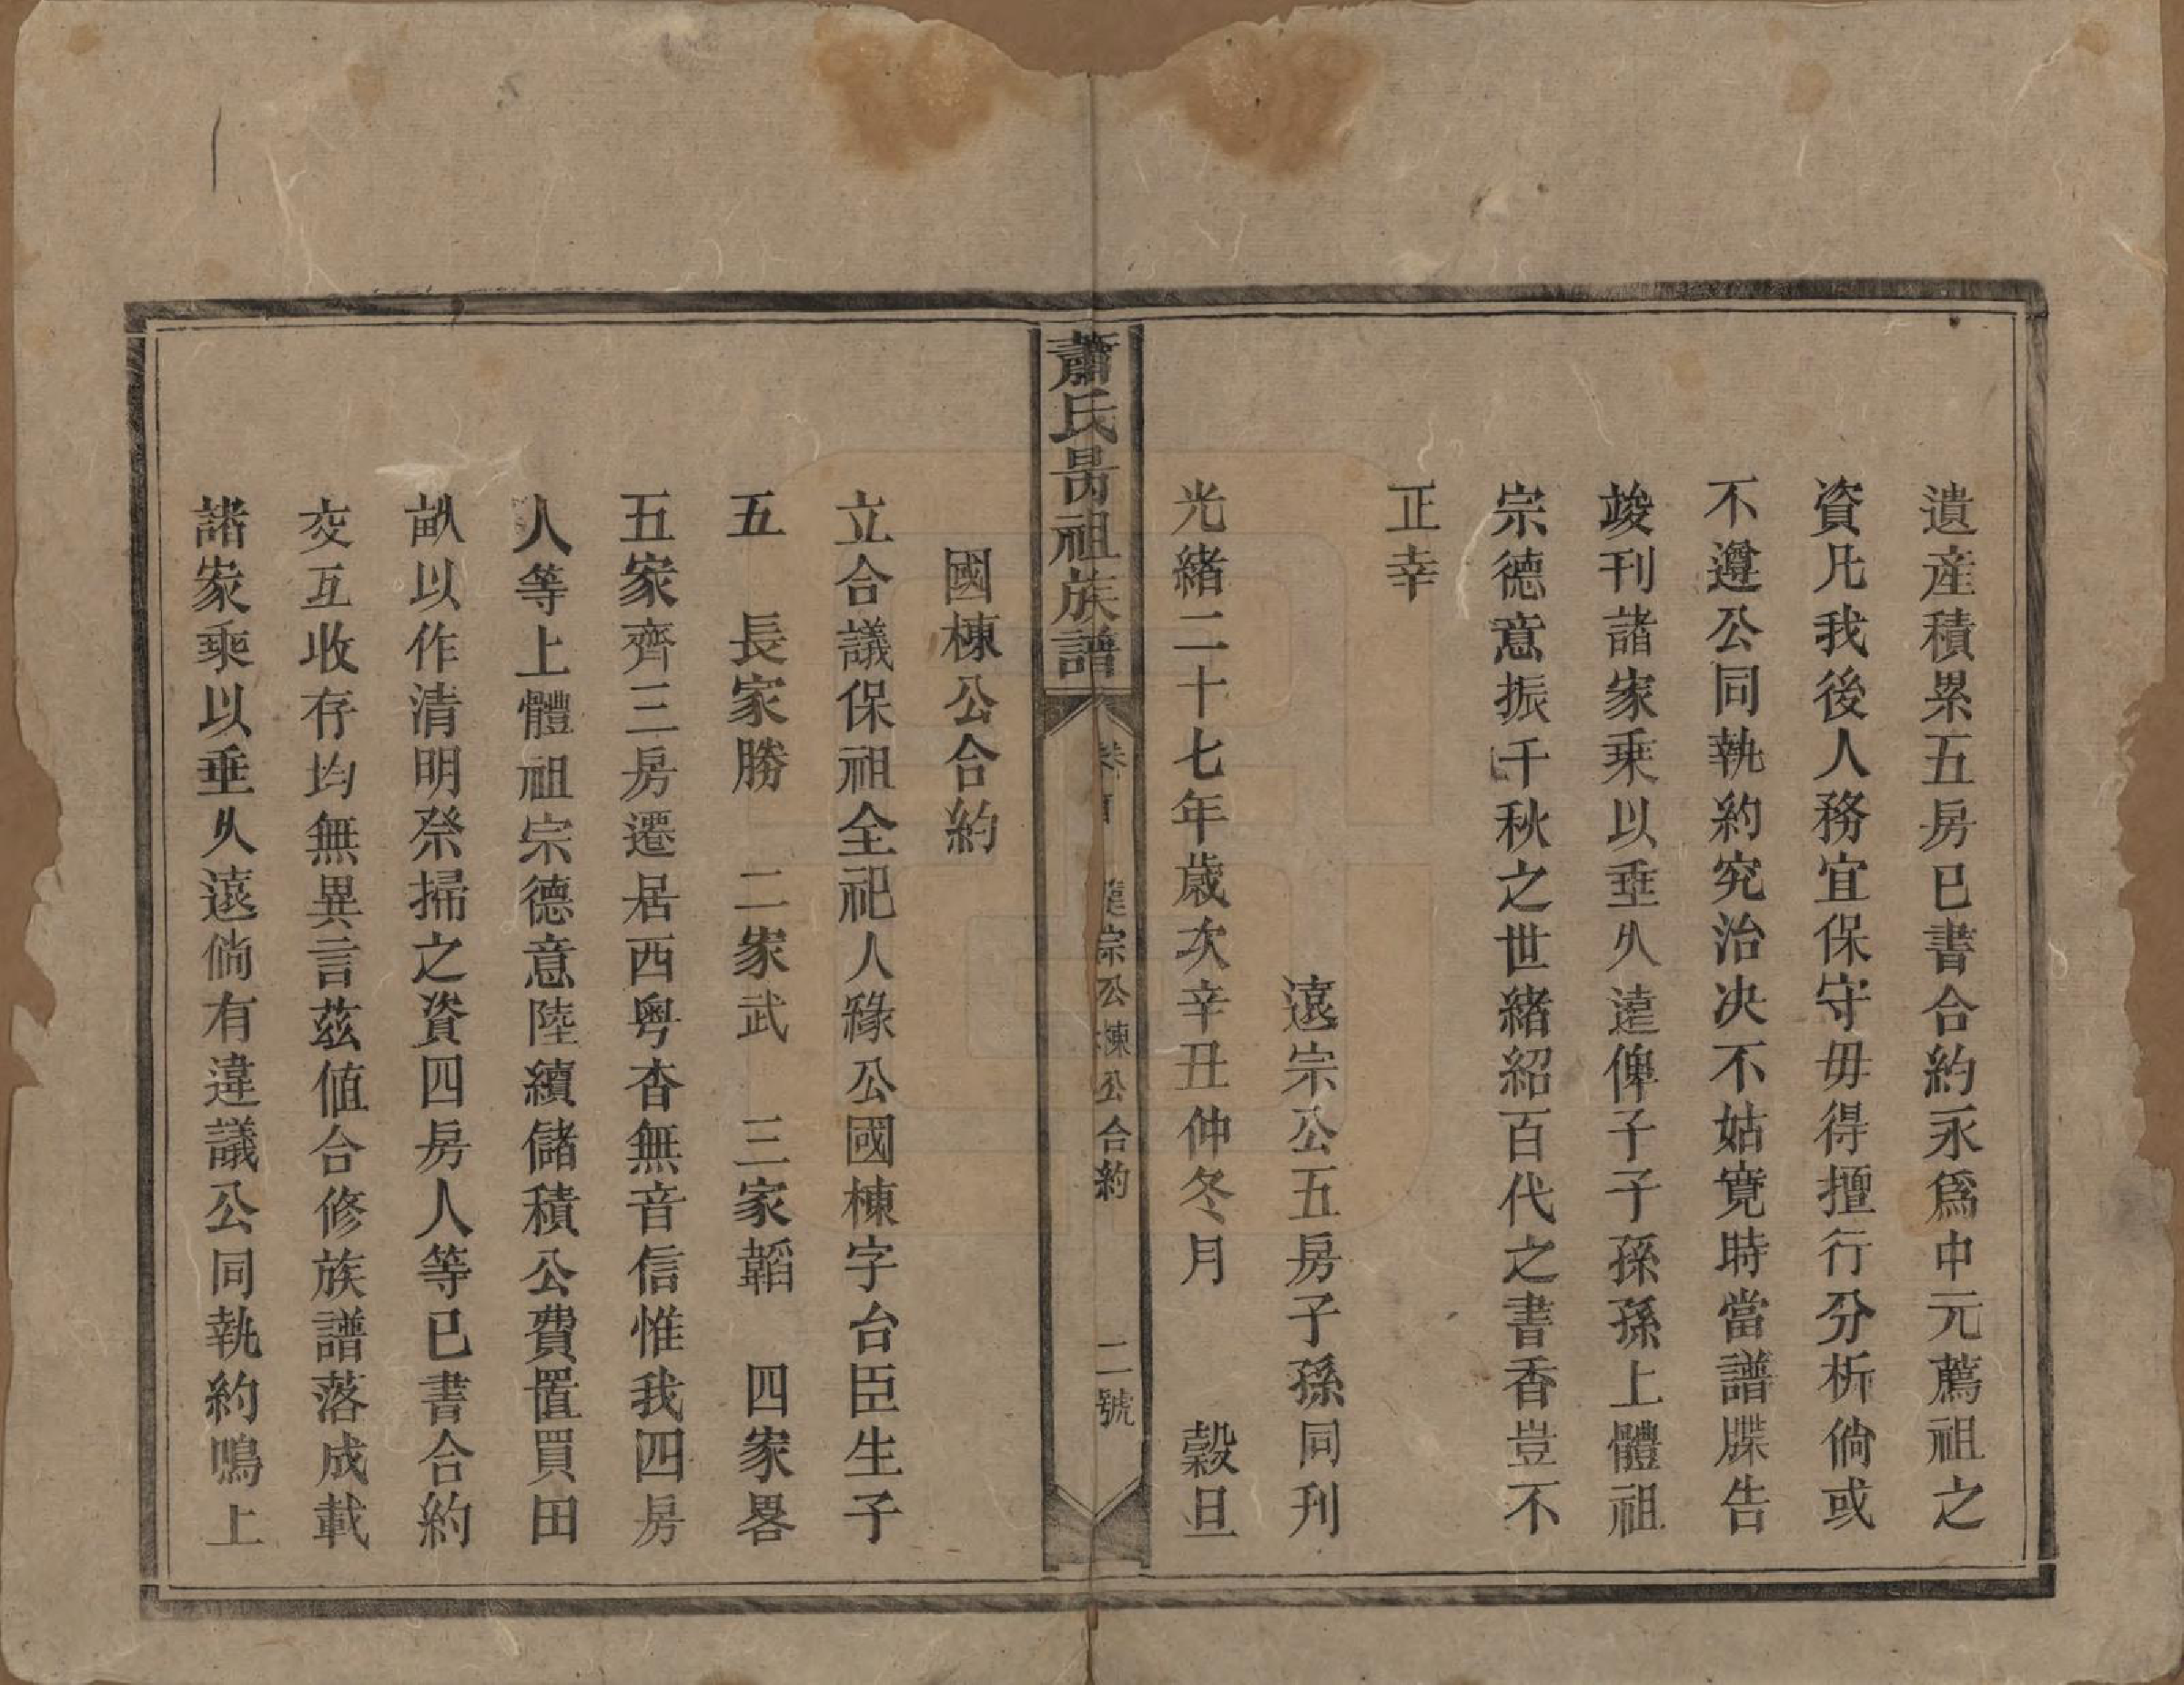 遺產積累五房已書合約永爲中元薦祖之
資凡我後人務宜保守毋得擅行分析倘或
不遵公同執約究治决不姑寬時當譜牒告
竣刊諸家乘以垂久遠俾子子孫孫上體祖
宗德意振千秋之世緒紹百代之書香豈不
正幸
遠宗公五房子孫同刊
光緒二十七年歲次辛丑仲冬月 穀旦
蕭氏昺祖族譜 卷首 遠宗公棟公合約 二號
國棟公合約
立合議保祖全祀人緣公國棟字台臣生子
五 長家勝 二家武 三家韜 四家畧
五家齊三房遷居西粵杳無音信惟我四房
人等上體祖宗德意陸續儲積公費置買田
畝以作清明祭掃之資四房人等已書合約
交互收存均無異言茲値合修族譜落成載
諸家乘以垂久遠倘有違議公同執約鳴上